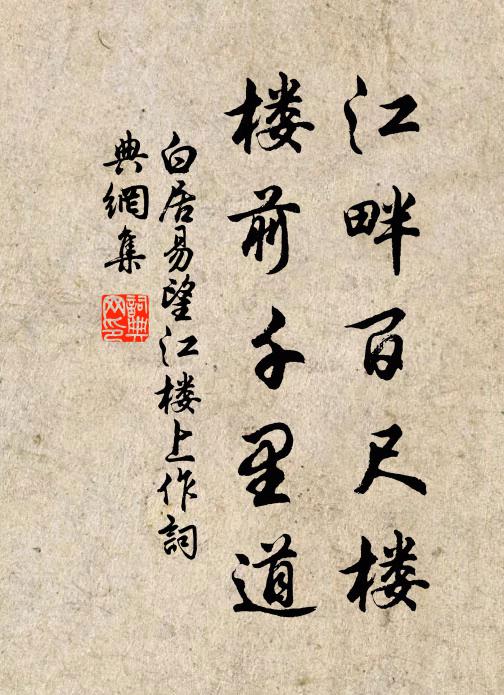 江畔百尺楼
楼前千里道
白居易望江楼上作詞
典網集
詞典
网印